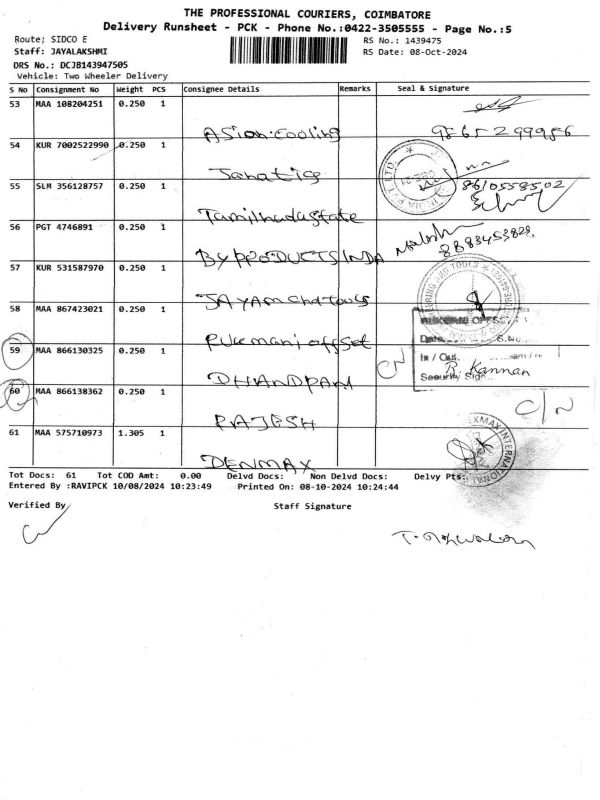 THE PROFESSIONAL COURIERS, COIMBATORE
Delivery Runsheet - PCK - Phone No.:0422-3505555 - Page No.:5
Route; SIDCO E
RS No.: 1439475
Staff: JAYALAKSHMI
RS Date: 08-Oct-2024
DRS No.: DCJB143947505
Vehicle: Two Wheeler Delivery
S No Consignment No Weight PCS Consignee Details Remarks Seal & Signature
53 MAA 108204251 0.250 1
Asian.Cooling 98652 99956
54 KUR 7002522990 0.250 1
55 SLM 356128757 0.250 1 8610558502
Tamilnadustate
56 PGT 4746891 0.250 1
BY PRODUCTS INDA 8883453828
57 KUR 531587970 0.250 1
58 MAA 867423021 0.250 1
Rukmani offset
59 MAA 866130325 0.250 1 In / Out
DHANDPANI Security Sign. R. Kannan
60 MAA 866138362 0.250 1 C/N
RAJESH
61 MAA 575710973 1.305 1
DENMAX
Tot Docs: 61 Tot COD Amt: 0.00 Delvd Docs: Non Delvd Docs: Delvy Pts:
Entered By :RAVIPCK 10/08/2024 10:23:49 Printed On: 08-10-2024 10:24:44
Verified By Staff Signature